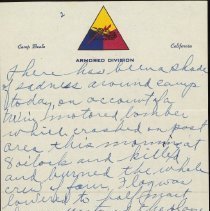 2
Camp Beale California
ARMORED DIVISION
There has been a shade
of sadness around camp
today, on account of a
twin motored bomber
which crashed on post
area this morning at
8 oilock and killed
and burned the whole
crew of four, Flag was
lowered to half mast